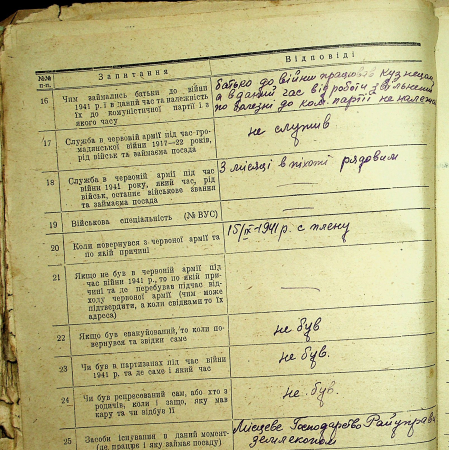 №№ п-п.
Запитання
Відповіді
16
Чим займались батьки до війни
1941 р. і в даний час та належність
їх до комуністичної партії і з
якого часу
батько до війни працював кузнецом
а в даний час від роботи звільнений
по болезні до ком. партії не належав
17
Служба в червоній армії під час гро-
мадянської війни 1917—22 років,
рід військ та займаєма посада
не служив
18
Служба в червоній армії під час
війни 1941 року, який час, рід
військ, останнє військове звання
та займаєма посада
3 місяці в піхоті рядовим
19
Військова спеціяльність (№ ВУС)
20
Коли повернувся з червоної армії та
по якій причині
15/IX-1941 р. с плену
21
Якщо не був в червоній армії під
час війни 1941 р., то по якій при-
чині та де перебував підчас від-
ходу червоної армії (чим може
підтвердити, а коли свідками то їх
адреса)
22
Якщо був евакуйований, то коли по-
вернувся та звідки саме
не був
23
Чи був в партизанах під час війни
1941 р. та де саме і який час
не був.
24
Чи був репресований сам, або хто з
родичів, коли і защо, яку мав
кару та чи відбув її
не був.
25
Засоби існування в даний момент
(де працює і яку займає посаду)
Місцеве Господарство Райуправи
землекопом